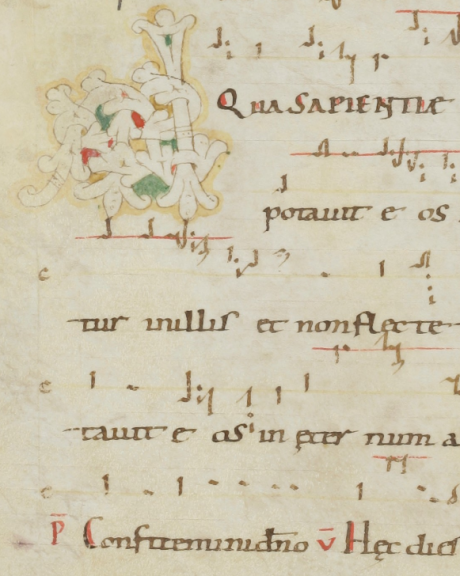 A QUA SAPIENTIĘ
potauit e os
c
tur illis et non flecte
c
tauit e os in ęter num a
c
P̄ Confitemini dño v̄ Hęc dies